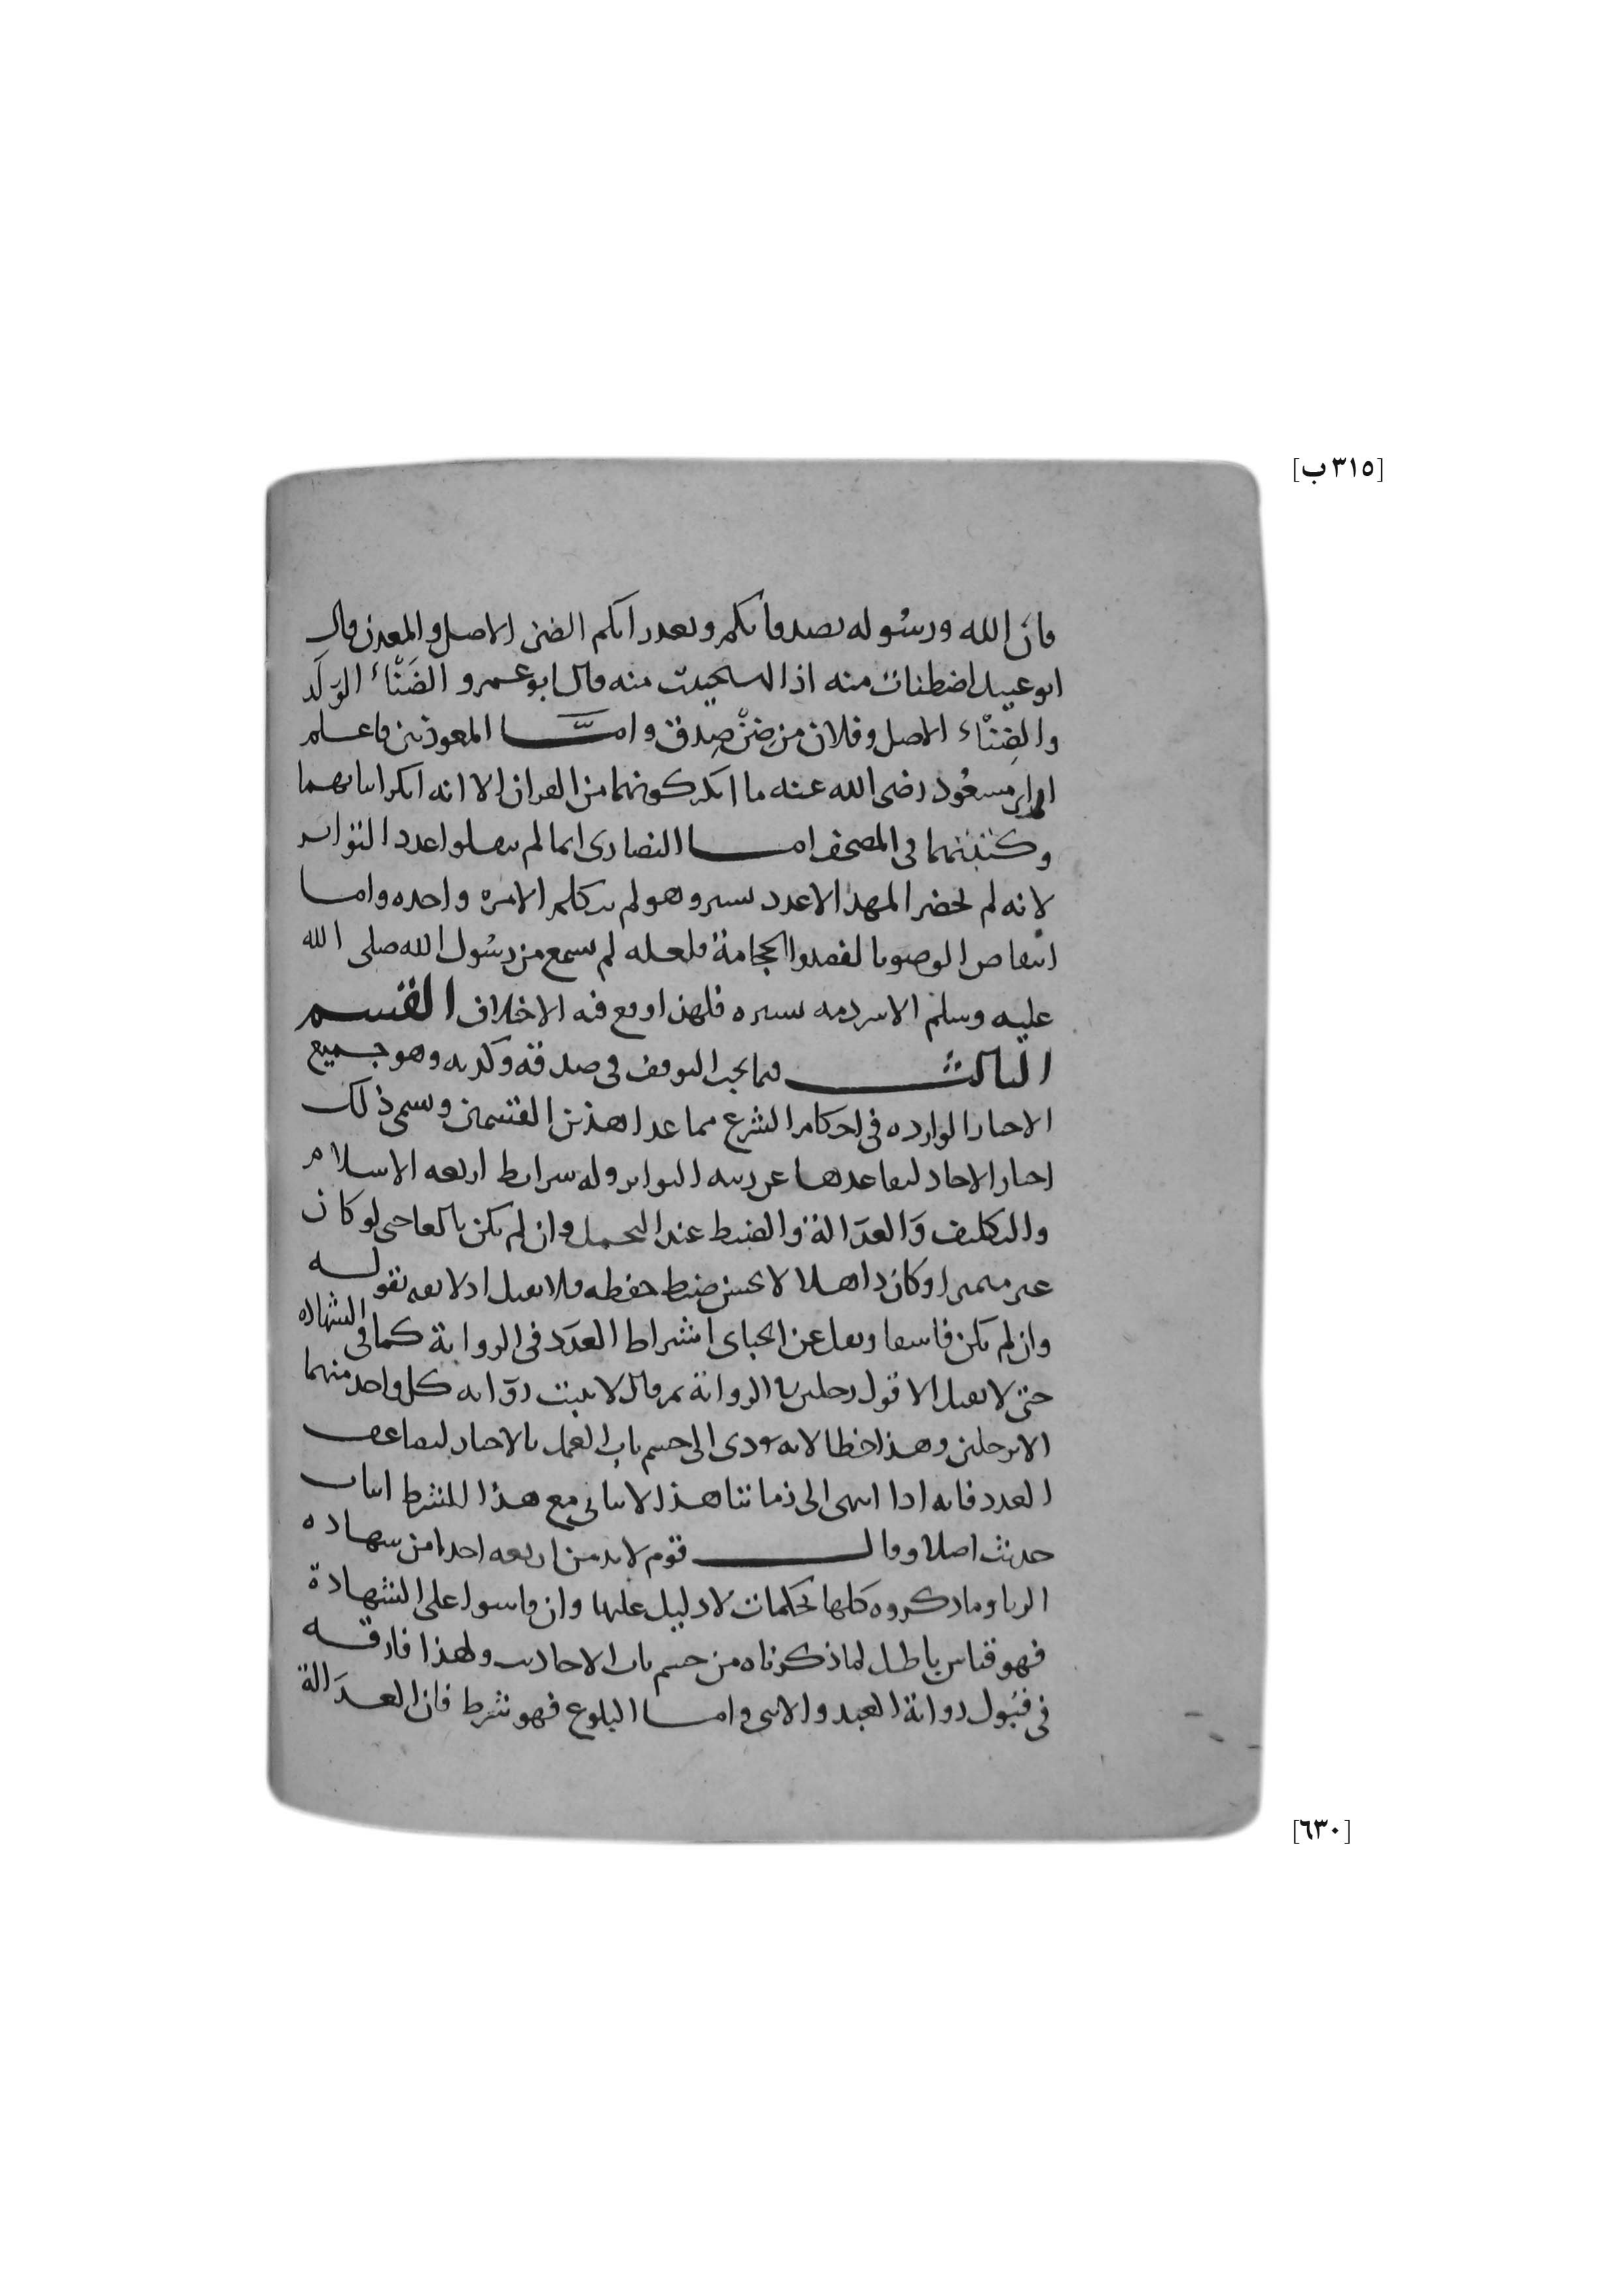 [٣١٥ ب]
فان الله ورسوله يصدقانكم ويعذرانكم الضنى الاصل والمعدن قال
ابو عبيد اضطنات منه اذا استحييت منه قال ابو عمرو الضَنْاء الوَلَد
والضِنْاء الاصل وفلان من ضِنْ صِدق وامَّا المعوذتين فاعلم
ان ابن مسعُود رضى الله عنه ما انكر كونهما من القران الا انه انكر اثباتهما
وكتبتهما فى المصحف امـا النصارى انما لم ينقلوا عدد التواتر
لانه لم يحضر المهد الا عدد يسير وهو لم يتكلم الا مره واحده واما
انتقاض الوضو بالفصد والحجامة فلعله لم يسمع من رسُول الله صلى الله
عليه وسلم الا شرذمه يسيره فلهذا وقع فيه الاختلاف القسم
الثالث فيما يجب التوقف فى صدقه وكذبه وهو جميع
الاخبار الوارده فى احكام الشرع مما عدا هذين القسمين وسمى ذلك
اخبار الاحاد لتقاعدها عن رتبه التواتر وله شرايط اربعه الاسلام
والتكليف وَالعدَالة والضبط عند التحمل وان لم يكن بالغا حتى لو كان
غير مميز او كان ذاهلا لا يحسن ضبط حفظه فلا يقبل اذ لا ثقه بقوله
وان لم يكن فاسقا ونقل عن الجباى اشتراط العدَد فى الرواية كما فى الشهاده
حتى لا يقبل الا قول رجلين فى الرواية ثم قال لا يثبت روايه كل واحد منهما
الا برجلين وهذا خطا لانه يودى الى حسم باب العمل بالاخبار لتضاعف
العدد فانه اذا انتهى الى زماننا هذا لا يتاتى مع هذا الشرط اثبات
حديث اصلا وقال قوم لا بد من اربعه اخذا من شهاده
الزنا وما ذكروه كلها تحكمات لا دليل عليها وان قاسوا على الشهادة
فهو قياس باطل لما ذكرناه من حسم باب الاحاديث ولهذا فارقه
فى قبُول رواية العبد والانثى وامـا البلوغ فهو شرط فان العدَالة
[٦٣٠]